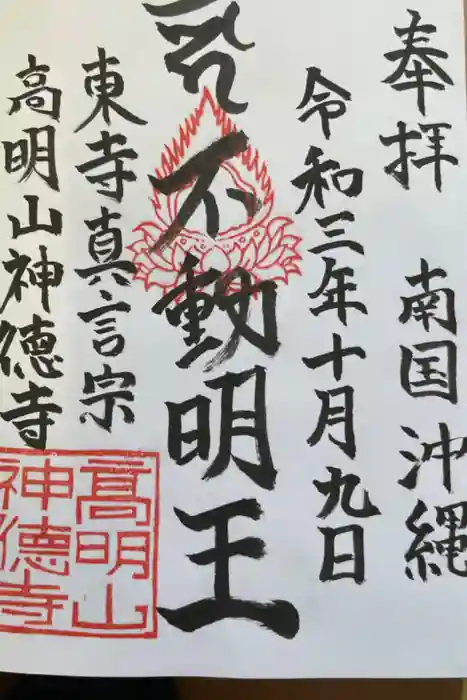 奉拝　南国沖縄
令和三年十月九日
不動明王
東寺真言宗
高明山神徳寺
髙明山
神德寺